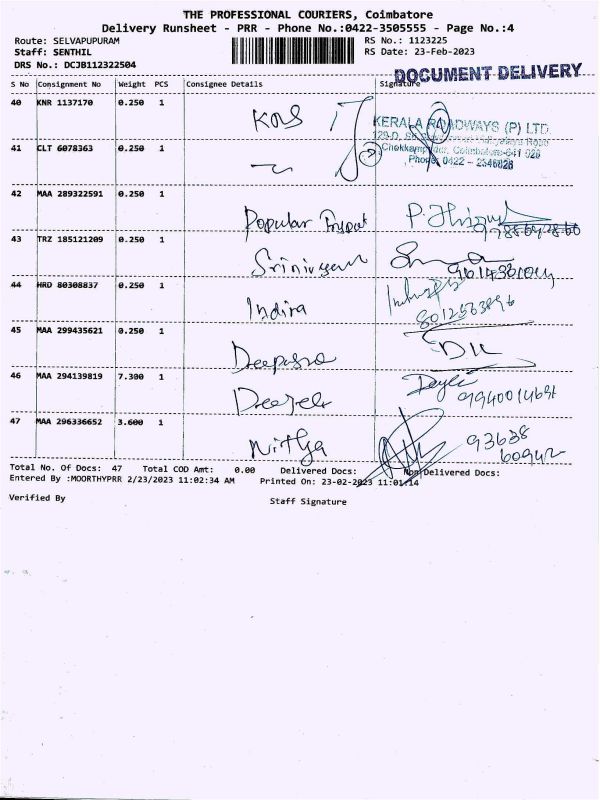 THE PROFESSIONAL COURIERS, Coimbatore
Delivery Runsheet - PRR - Phone No.:0422-3505555 - Page No.:4
Route: SELVAPUPURAM RS No.: 1123225
Staff: SENTHIL RS Date: 23-Feb-2023
DRS No.: DCJB112322504
DOCUMENT DELIVERY
S No Consignment No Weight PCS Consignee Details Signature
40 KNR 1137170 0.250 1
KERALA ROADWAYS (P) LTD
41 CLT 6078363 0.250 1
Coimbatore-641 026
Phone 0422 - 2346828
42 MAA 289322591 0.250 1
Popular
43 TRZ 185121209 0.250 1
Srinivasan
44 HRD 80308837 0.250 1
Indira
45 MAA 299435621 0.250 1
46 MAA 294139819 7.300 1
9940014691
47 MAA 296336652 3.600 1
Nithya 93638
60942
Total No. Of Docs: 47 Total COD Amt: 0.00 Delivered Docs: Non Delivered Docs:
Entered By :MOORTHYPRR 2/23/2023 11:02:34 AM Printed On: 23-02-2023 11:01:14
Verified By Staff Signature